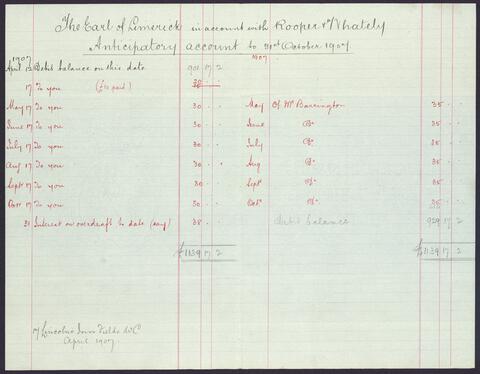 The Earl of Limerick in account with Rooper & Whately
Anticipatory account to 31st October 1907.
1907 1907
April 13 Debit balance on this date 901 17 2
17 To you (£10 paid) 20
May 17 To you 30 . . May Of Mr Barrington 35 . .
June 17 To you 30 . . June Do 35 . .
July 17 To you 30 . . July Do 35 . .
Aug 17 To you 30 . . Aug Do 35 . .
Sept 17 To you 30 . . Sept Do 35 . .
Oct 17 To you 30 . . Oct Do 35 . .
31 Interest on overdraft to date (say) 38 . . Debit balance 929 17 2
£1139 17 2 £1139 17 2
17 Lincolns Inn Fields W.C.
April 1907.